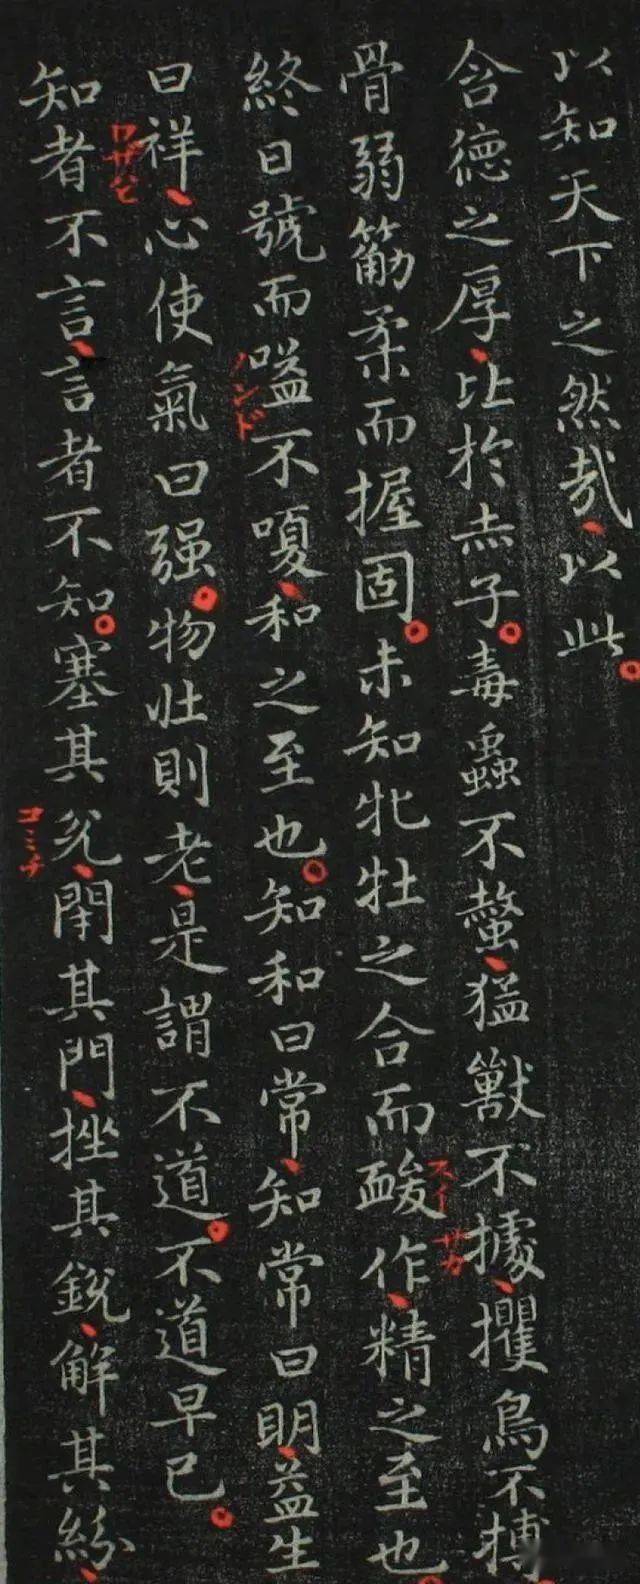 以知天下之然哉以此
含德之厚比於赤子毒蟲不螫猛獸不據攫鳥不搏
骨弱筋柔而握固未知牝牡之合而酸作精之至也
終日號而嗌不嗄和之至也知和曰常知常曰明益生
曰祥心使氣曰强物壯則老是謂不道不道早已
知者不言言者不知塞其兊閉其門挫其銳解其紛
スイ
サカ
ノンド
ワザハヒ
コミチ